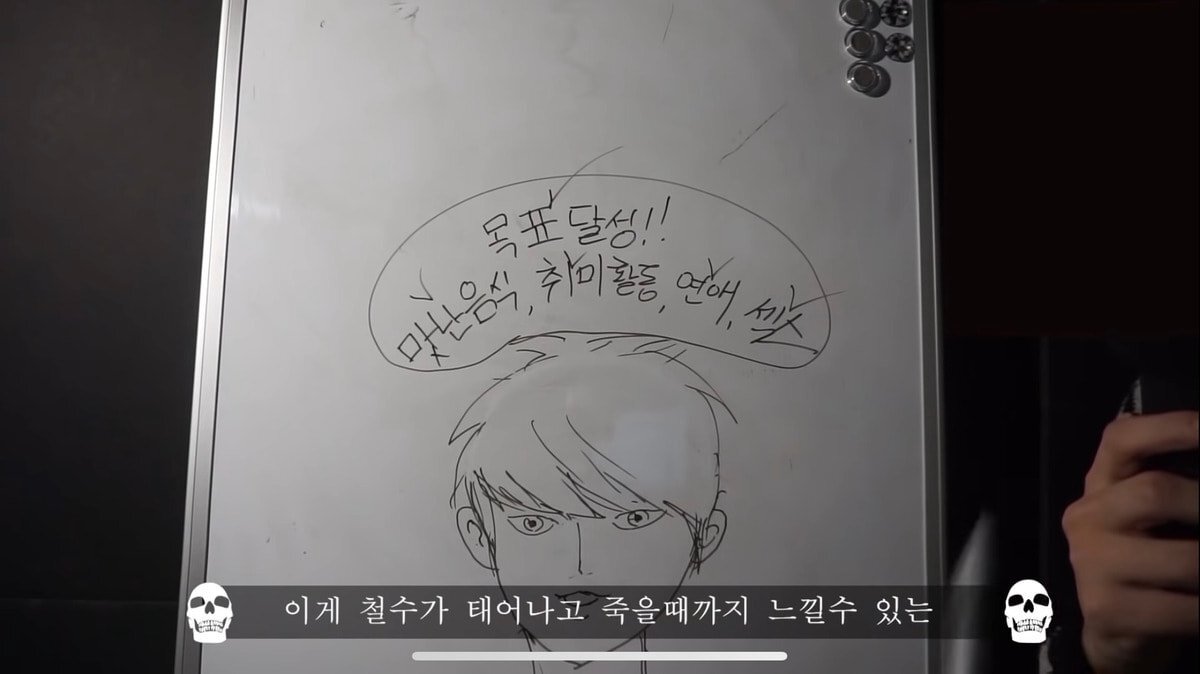 목표 달성!!
맛난음식, 취미활동, 연애, 섹스
이게 철수가 태어나고 죽을때까지 느낄수 있는